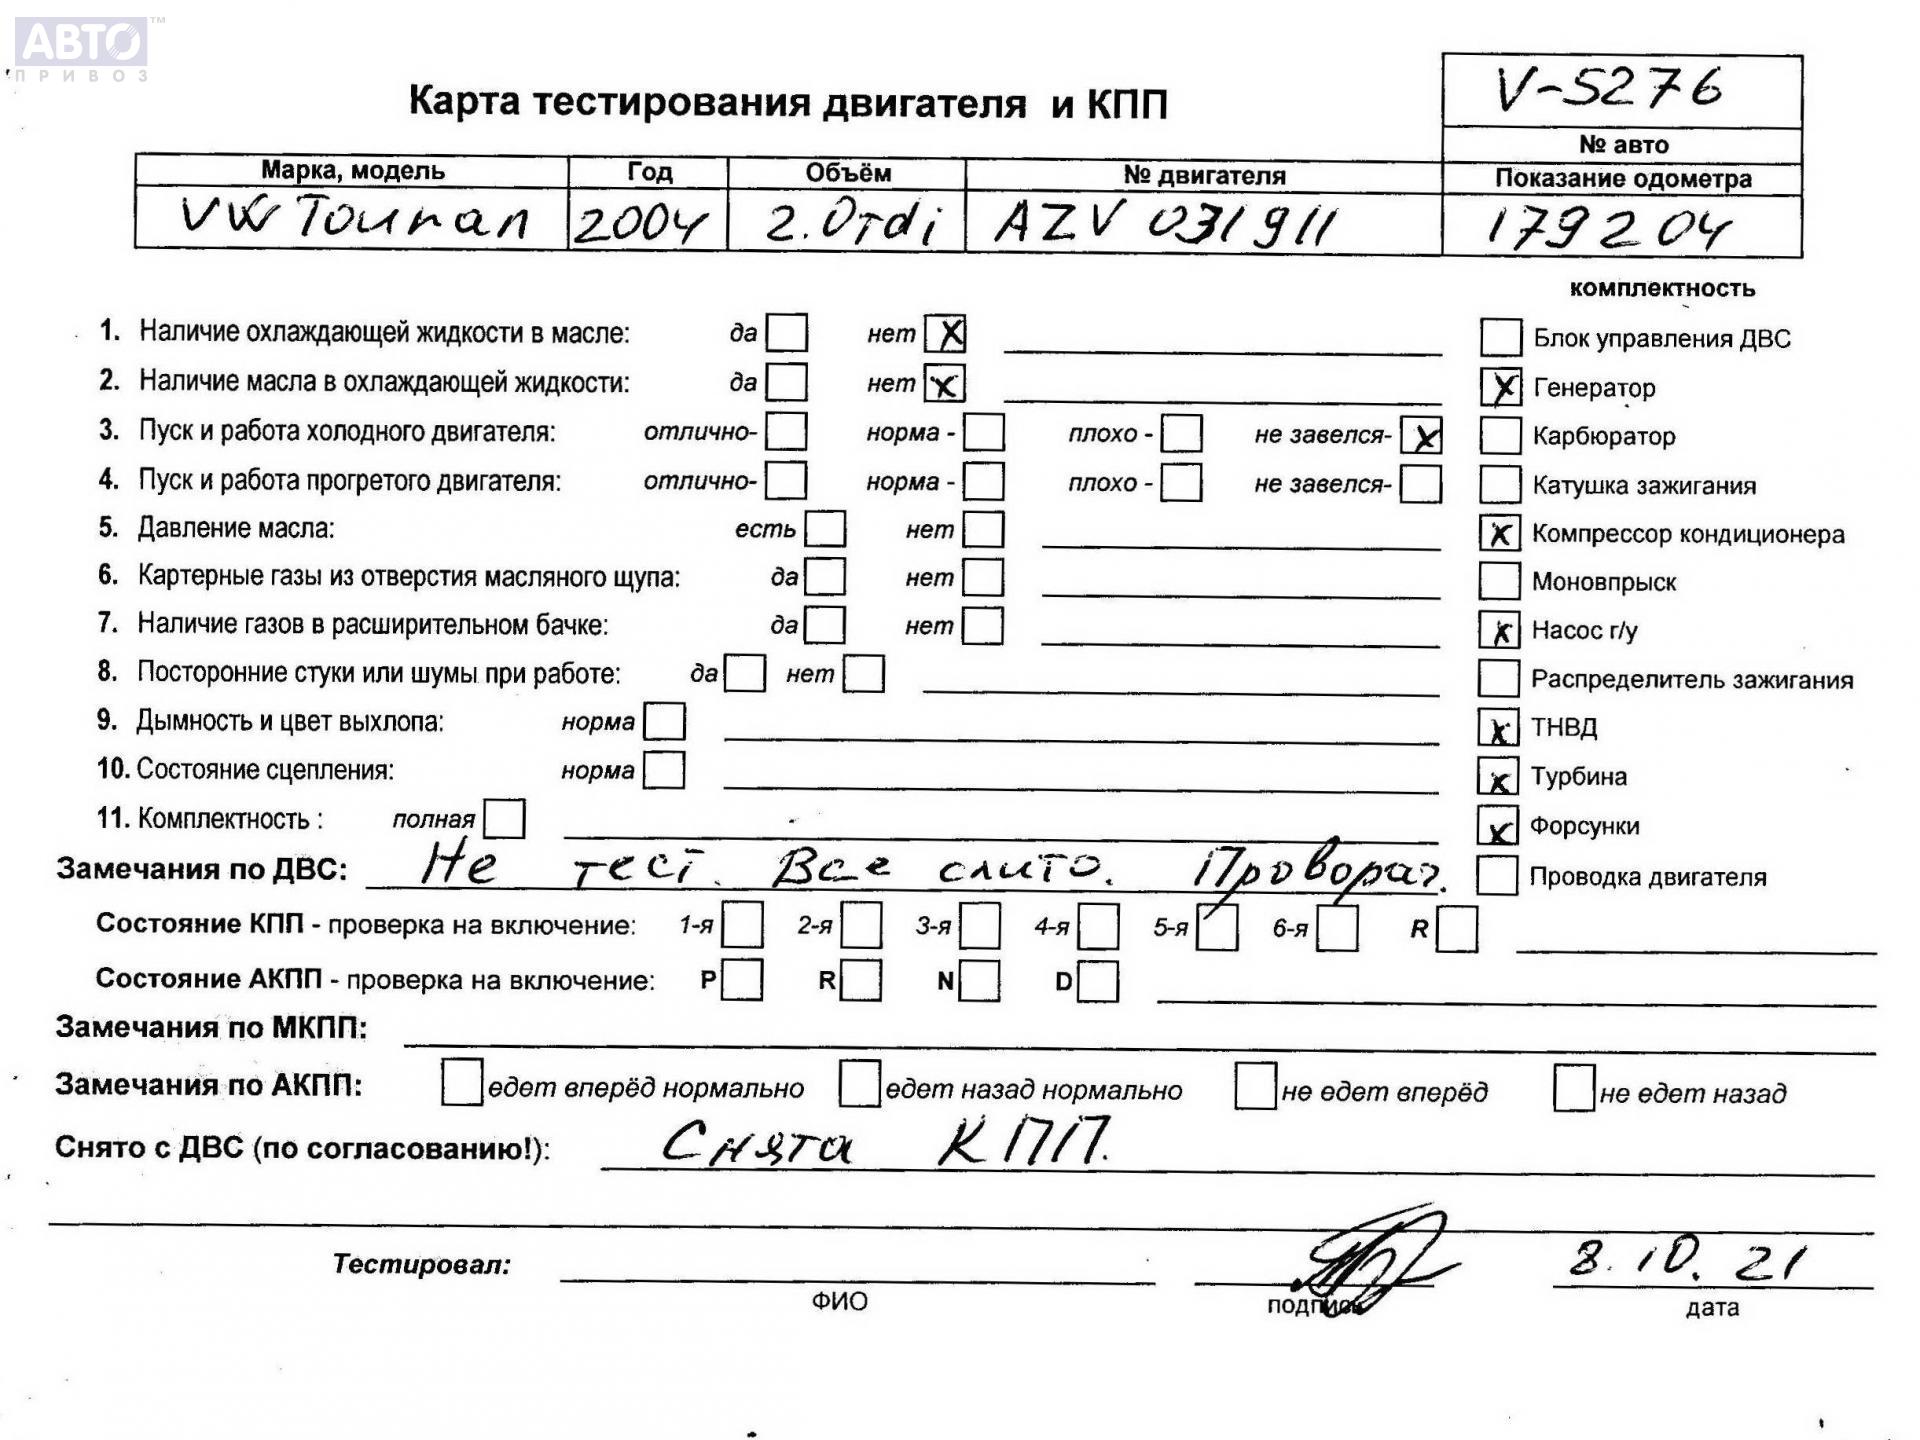 АВТО™
ПРИВОЗ
V-5276
Карта тестирования двигателя и КПП
№ авто
Марка, модель Год Объём № двигателя Показание одометра
VW Touran 2004 2.0Tdi AZV 031911 179204
комплектность
1. Наличие охлаждающей жидкости в масле: да нет X Блок управления ДВС
2. Наличие масла в охлаждающей жидкости: да нет X X Генератор
3. Пуск и работа холодного двигателя: отлично- норма - плохо - не завелся- X Карбюратор
4. Пуск и работа прогретого двигателя: отлично- норма - плохо - не завелся- Катушка зажигания
5. Давление масла: есть нет X Компрессор кондиционера
6. Картерные газы из отверстия масляного щупа: да нет Моновпрыск
7. Наличие газов в расширительном бачке: да нет X Насос г/у
8. Посторонние стуки или шумы при работе: да нет Распределитель зажигания
9. Дымность и цвет выхлопа: норма X ТНВД
10. Состояние сцепления: норма X Турбина
11. Комплектность : полная X Форсунки
Замечания по ДВС: Не тест. Все слито. Проворач. Проводка двигателя
Состояние КПП - проверка на включение: 1-я 2-я 3-я 4-я 5-я 6-я R
Состояние АКПП - проверка на включение: P R N D
Замечания по МКПП:
Замечания по АКПП: едет вперёд нормально едет назад нормально не едет вперёд не едет назад
Снято с ДВС (по согласованию!): Снята КПП.
Тестировал: 8.10.21
ФИО подпись дата